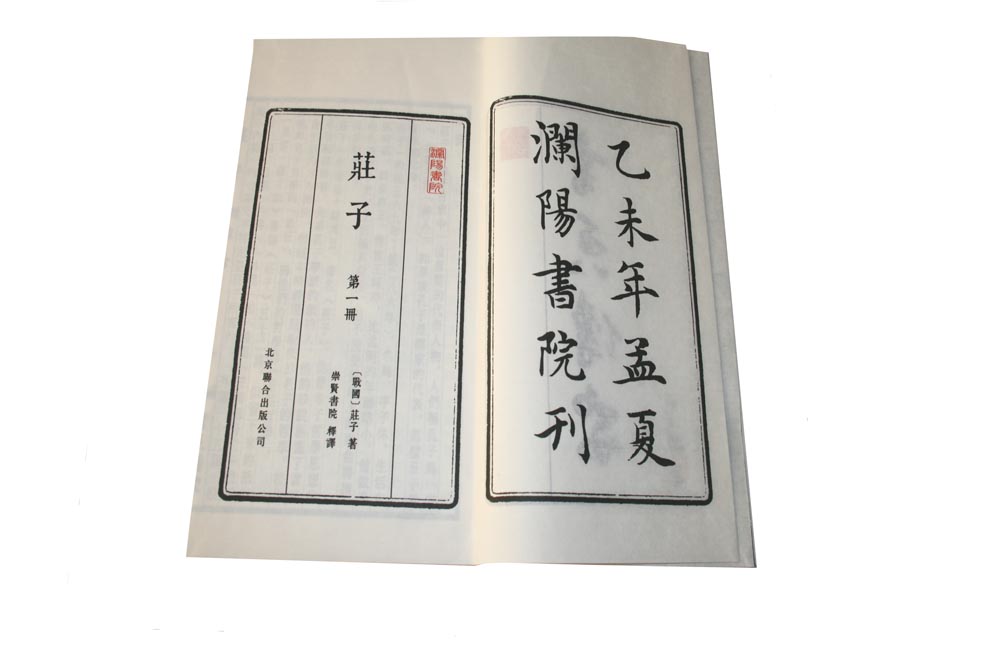 乙未年孟夏
瀾陽書院刊
瀾陽書院
莊子 第一冊
〔戰國〕莊子 著
崇賢書院 釋譯
北京聯合出版公司